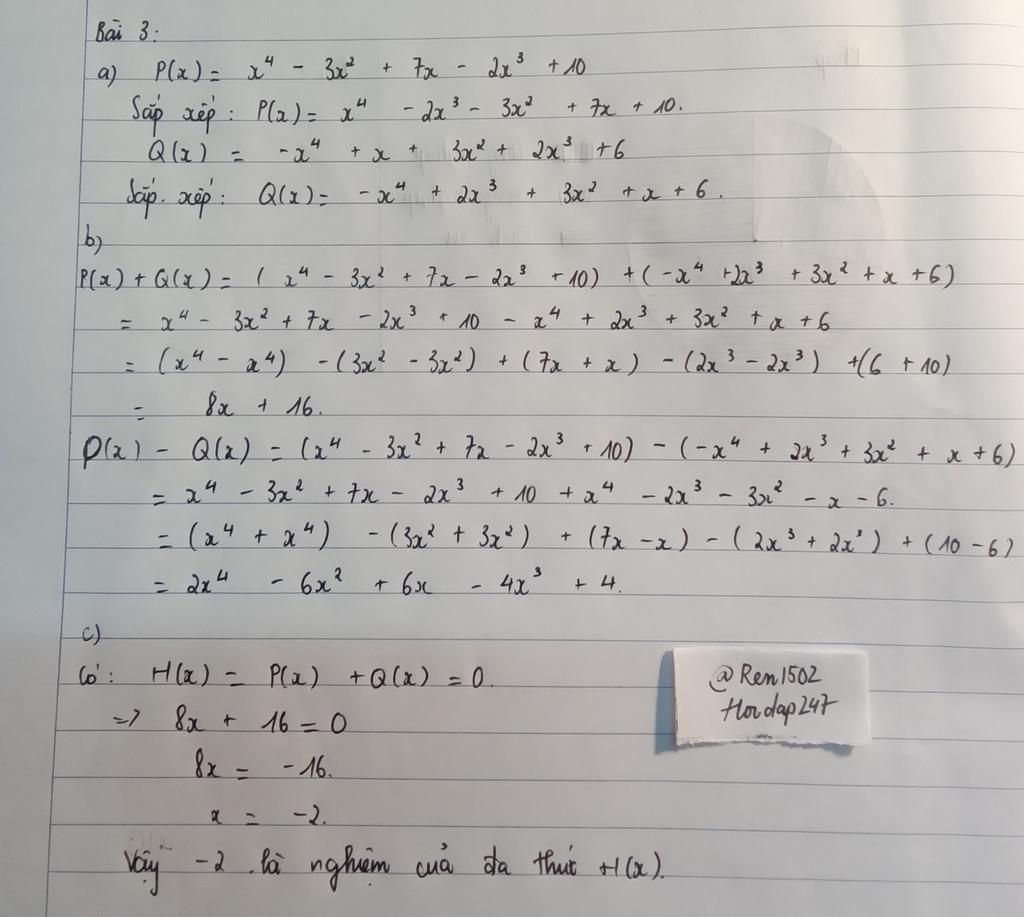 Bài 3:
a) P(x) = x⁴ - 3x² + 7x - 2x³ + 10
Sắp xếp: P(x) = x⁴ - 2x³ - 3x² + 7x + 10.
Q(x) = -x⁴ + x + 3x² + 2x³ + 6
Sắp xếp: Q(x) = -x⁴ + 2x³ + 3x² + x + 6.
b)
P(x) + Q(x) = (x⁴ - 3x² + 7x - 2x³ + 10) + (-x⁴ + 2x³ + 3x² + x + 6)
= x⁴ - 3x² + 7x - 2x³ + 10 - x⁴ + 2x³ + 3x² + x + 6
= (x⁴ - x⁴) - (3x² - 3x²) + (7x + x) - (2x³ - 2x³) + (6 + 10)
= 8x + 16.
P(x) - Q(x) = (x⁴ - 3x² + 7x - 2x³ + 10) - (-x⁴ + 2x³ + 3x² + x + 6)
= x⁴ - 3x² + 7x - 2x³ + 10 + x⁴ - 2x³ - 3x² - x - 6.
= (x⁴ + x⁴) - (3x² + 3x²) + (7x - x) - (2x³ + 2x³) + (10 - 6)
= 2x⁴ - 6x² + 6x - 4x³ + 4.
c)
Có: H(x) = P(x) + Q(x) = 0.
=> 8x + 16 = 0
8x = -16.
x = -2.
Vậy -2 là nghiệm của đa thức H(x).
@Ren1502
Hoidap247